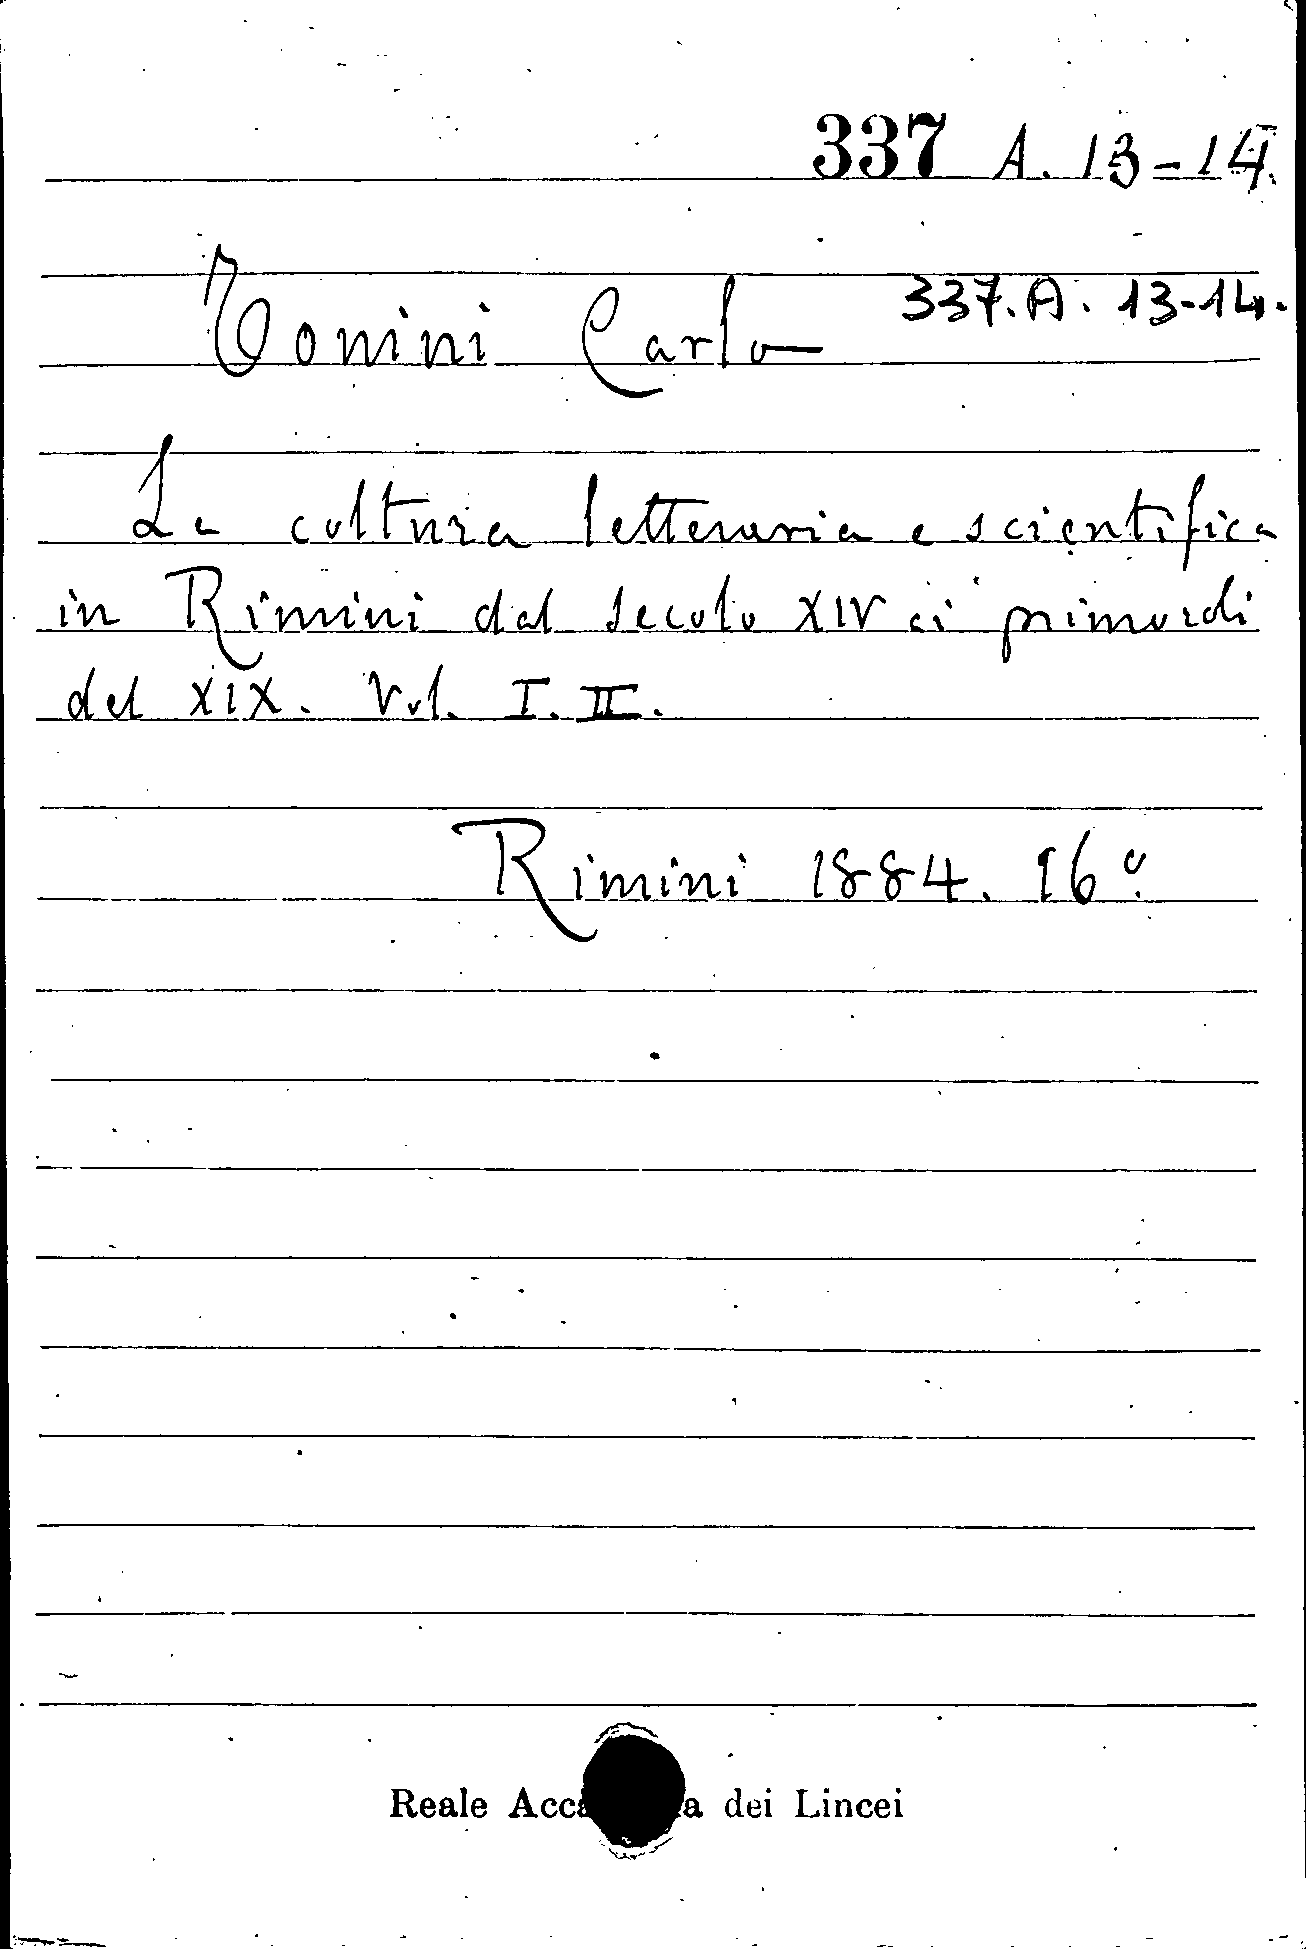 337 A. 13-14.
337. A. 13-14.
Tonini Carlo
La coltura letteraria e scientifica
in Rimini dal secolo XIV ai primordi
del XIX. Vol. I. II.
Rimini 1884. 16º.
Reale Acca a dei Lincei